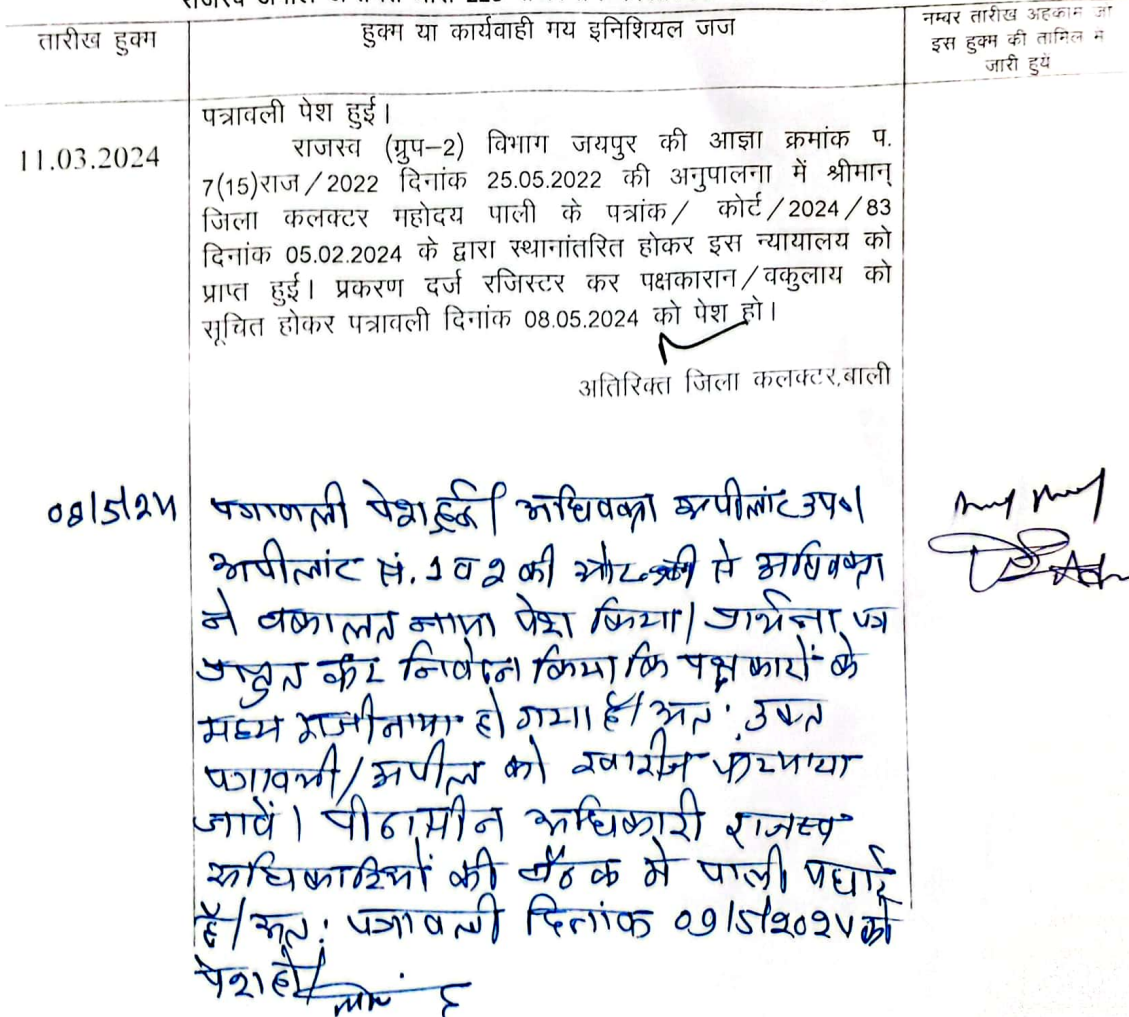 तारीख हुक्म
हुक्म या कार्यवाही मय इनिशियल जज
नम्बर तारीख अहकाम जा
इस हुक्म की तामिल म
जारी हुये
पत्रावली पेश हुई।
11.03.2024
राजस्व (ग्रुप-2) विभाग जयपुर की आज्ञा क्रमांक प.
7(15)राज/2022 दिनांक 25.05.2022 की अनुपालना में श्रीमान्
जिला कलक्टर महोदय पाली के पत्रांक/ कोर्ट/2024/83
दिनांक 05.02.2024 के द्वारा स्थानांतरित होकर इस न्यायालय को
प्राप्त हुई। प्रकरण दर्ज रजिस्टर कर पक्षकारान/वकुलाय को
सूचित होकर पत्रावली दिनांक 08.05.2024 को पेश हो।
अतिरिक्त जिला कलक्टर,बाली
08/5/24 पत्रावली पेश हुई। अधिवक्ता अपीलांट उप०।
अपीलांट सं. 1 व 2 की ओर से अधिवक्ता
ने वकालत नामा पेश किया। प्रार्थना पत्र
प्रस्तुत कर निवेदन किया कि पक्षकारों के
मध्य राजीनामा हो गया है। अत: उक्त
पत्रावली/अपील को खारीज फरमाया
जावें। पीठासीन अधिकारी राजस्व
अधिकारियों की बैठक मे पाली पधारे
है। अत: पत्रावली दिनांक 09/5/2024 को
पेश हो।